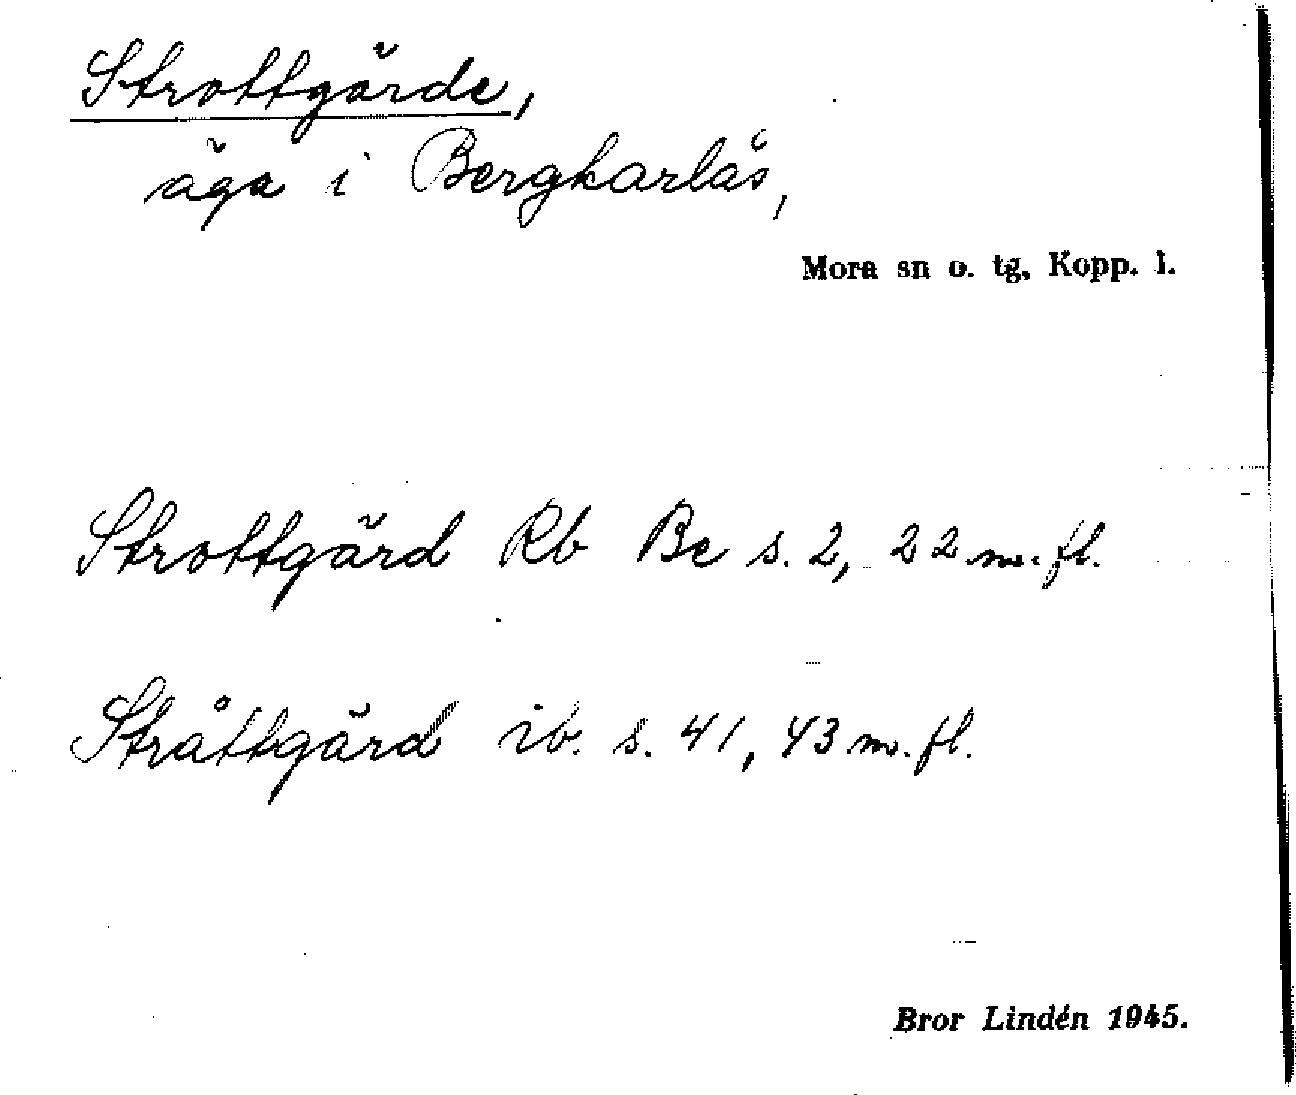 Strottgärde,
äga i Bergkarlås,
Mora sn o. tg, Kopp. l.
Strottgärd Rb Be s. 2, 22 m. fl.
Stråttgärd ib. s. 41, 43 m. fl.
Bror Lindén 1945.